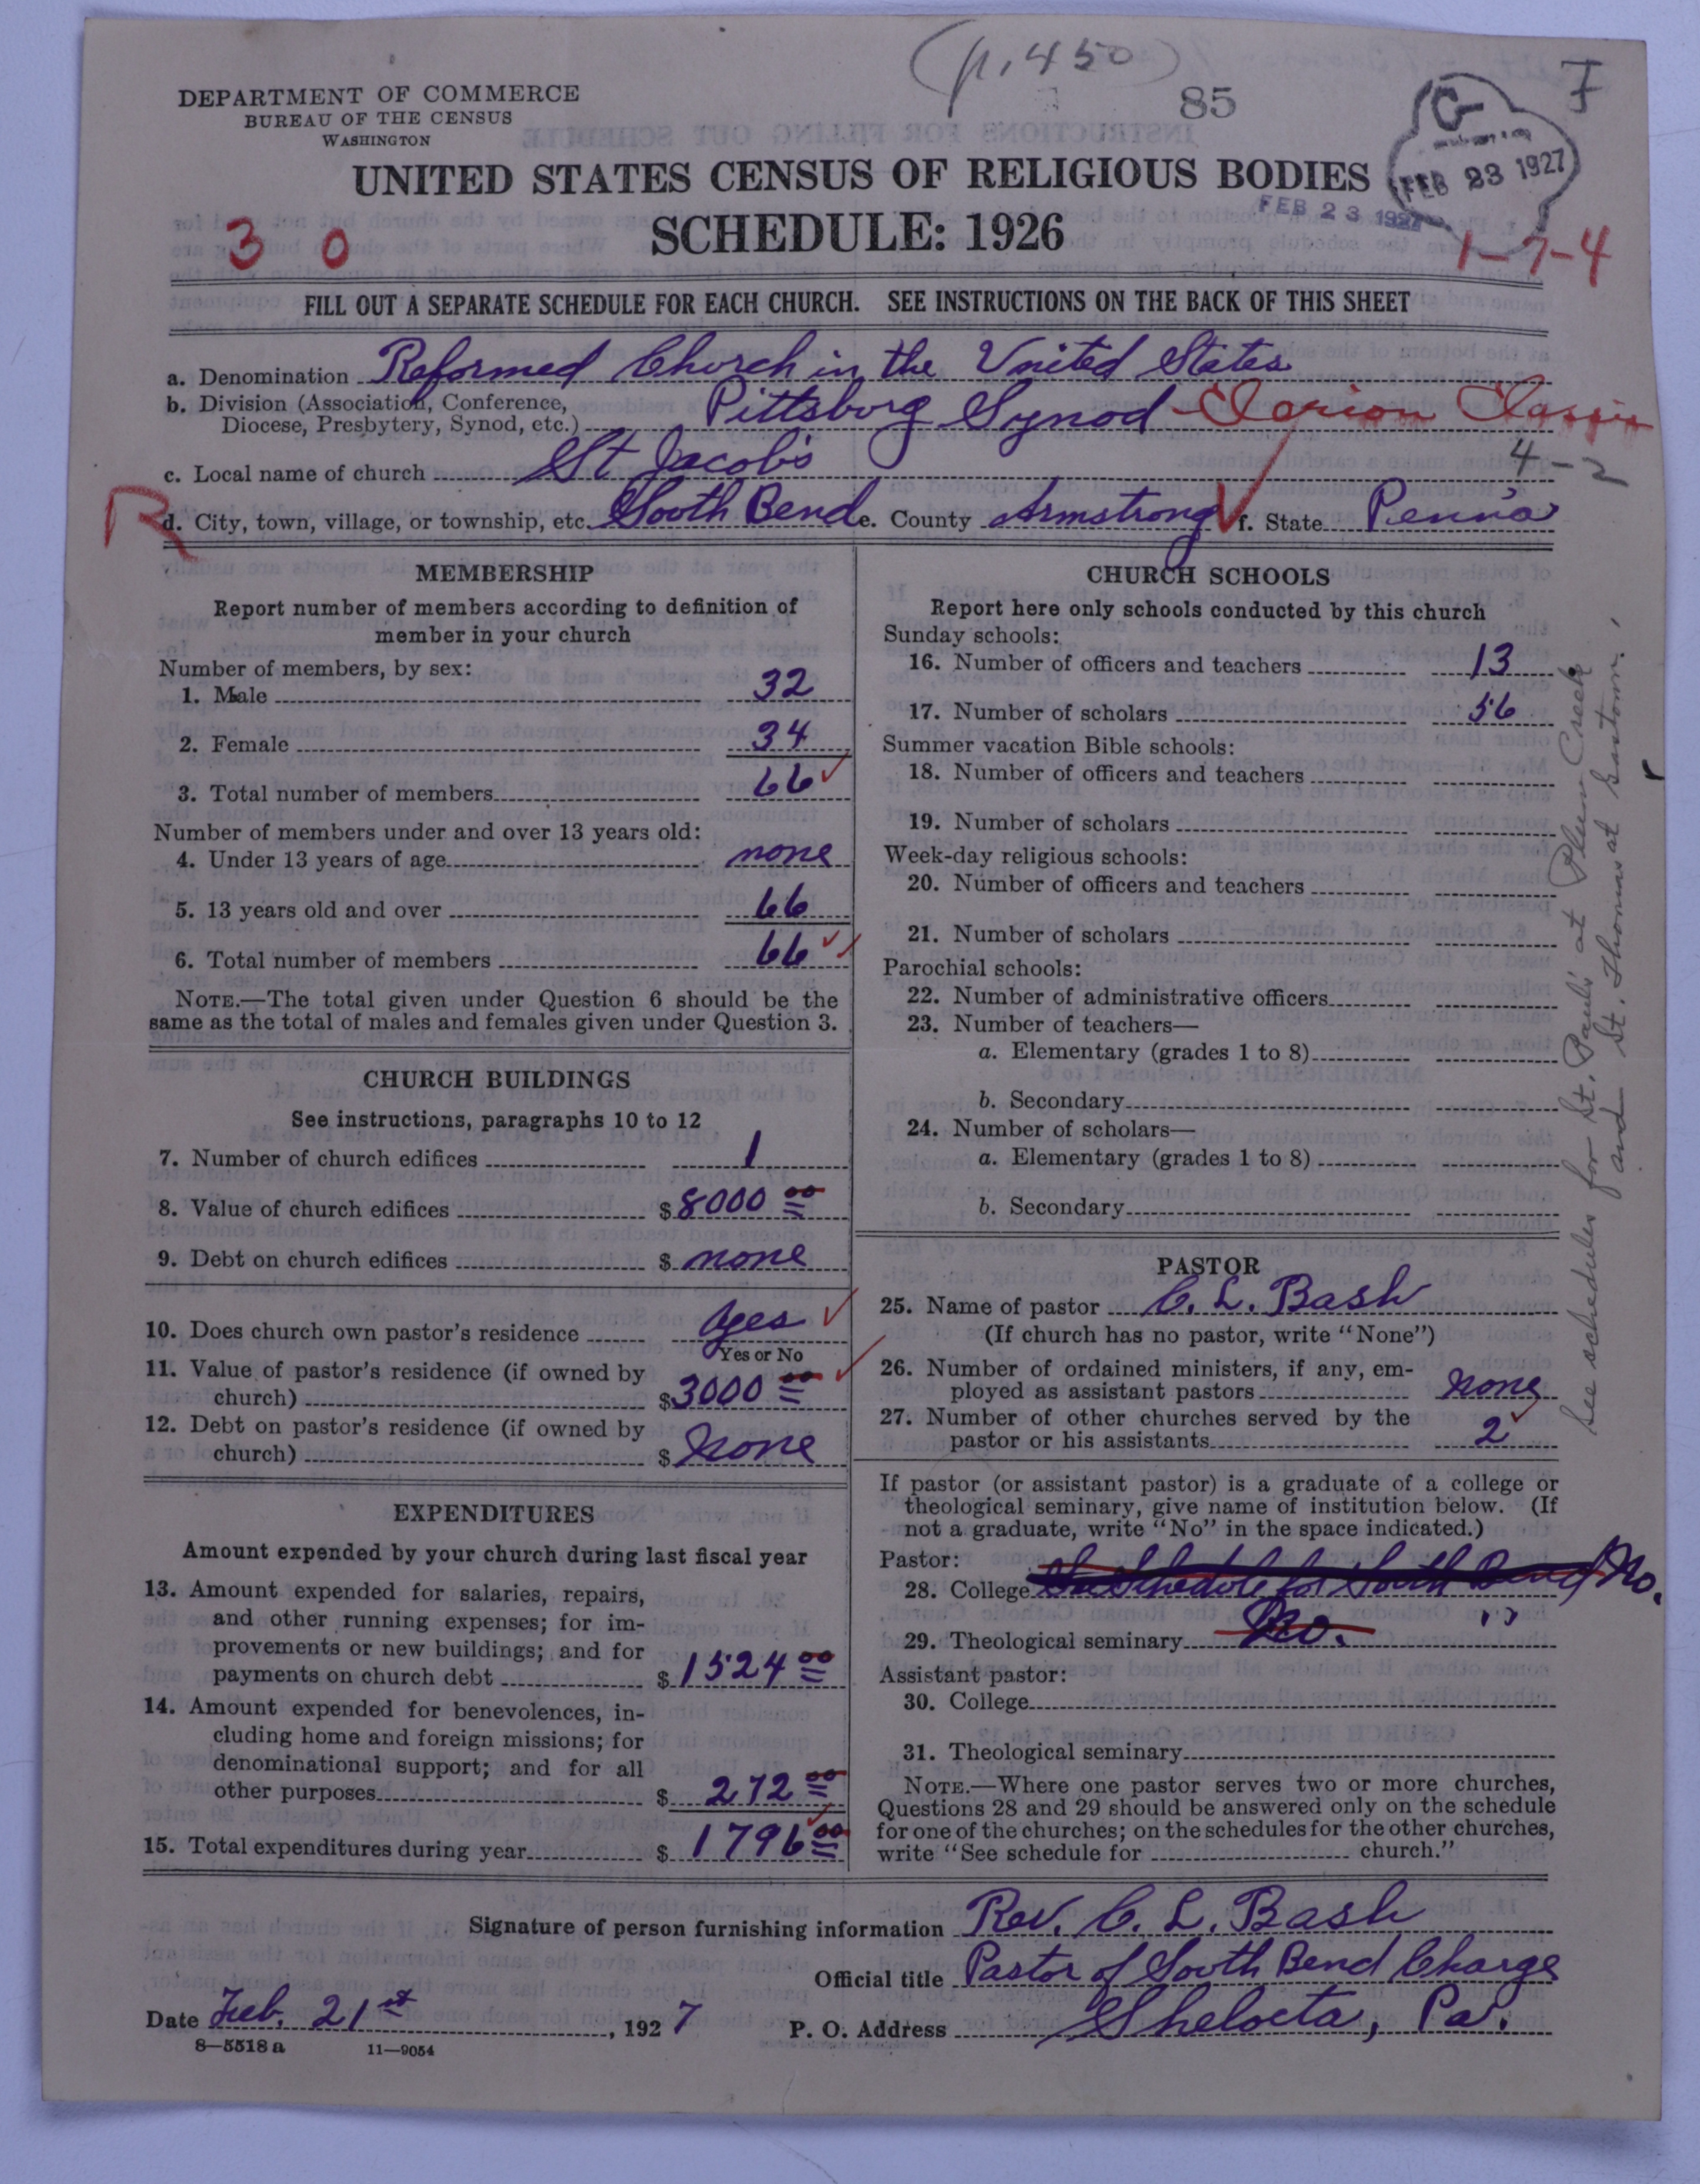 (p. 450)
85
F
DEPARTMENT OF COMMERCE
BUREAU OF THE CENSUS
WASHINGTON
FEB 23 1927
FEB 23 1927
UNITED STATES CENSUS OF RELIGIOUS BODIES
SCHEDULE: 1926
3 0
1-7-4
FILL OUT A SEPARATE SCHEDULE FOR EACH CHURCH. SEE INSTRUCTIONS ON THE BACK OF THIS SHEET
a. Denomination Reformed Church in the United States
b. Division (Association, Conference,
Diocese, Presbytery, Synod, etc.) Pittsburg Synod - Clarion Classis
4-2
c. Local name of church St Jacob's
R
d. City, town, village, or township, etc. South Bend e. County Armstrong f. State Penn'a
MEMBERSHIP
Report number of members according to definition of
member in your church
Number of members, by sex:
1. Male 32
2. Female 34
3. Total number of members 66
Number of members under and over 13 years old:
4. Under 13 years of age none
5. 13 years old and over 66
6. Total number of members 66
NOTE.—The total given under Question 6 should be the
same as the total of males and females given under Question 3.
CHURCH BUILDINGS
See instructions, paragraphs 10 to 12
7. Number of church edifices 1
8. Value of church edifices $8000 00
9. Debt on church edifices $ none
10. Does church own pastor's residence yes
Yes or No
11. Value of pastor's residence (if owned by
church) $3000 00
12. Debt on pastor's residence (if owned by
church) $ None
EXPENDITURES
Amount expended by your church during last fiscal year
13. Amount expended for salaries, repairs,
and other running expenses; for im-
provements or new buildings; and for
payments on church debt $1524 00
14. Amount expended for benevolences, in-
cluding home and foreign missions; for
denominational support; and for all
other purposes $ 272 00
15. Total expenditures during year $ 1796 00
CHURCH SCHOOLS
Report here only schools conducted by this church
Sunday schools:
16. Number of officers and teachers 13
17. Number of scholars 56
Summer vacation Bible schools:
18. Number of officers and teachers
19. Number of scholars
Week-day religious schools:
20. Number of officers and teachers
21. Number of scholars
Parochial schools:
22. Number of administrative officers
23. Number of teachers—
a. Elementary (grades 1 to 8)
b. Secondary
24. Number of scholars—
a. Elementary (grades 1 to 8)
b. Secondary
PASTOR
25. Name of pastor C. L. Bash
(If church has no pastor, write "None")
26. Number of ordained ministers, if any, em-
ployed as assistant pastors None
27. Number of other churches served by the
pastor or his assistants 2
If pastor (or assistant pastor) is a graduate of a college or
theological seminary, give name of institution below. (If
not a graduate, write "No" in the space indicated.)
Pastor:
28. College See Schedule for South Bend No.
29. Theological seminary No. "
Assistant pastor:
30. College
31. Theological seminary
NOTE.—Where one pastor serves two or more churches,
Questions 28 and 29 should be answered only on the schedule
for one of the churches; on the schedules for the other churches,
write "See schedule for church."
See schedules for St. Pauls' at Plum Creek
and St. Thomas at
Signature of person furnishing information Rev. C. L. Bash
Official title Pastor of South Bend Charge
Date Feb. 21st, 1927 P. O. Address Shelocta, Pa.
8—5518 a 11—9054